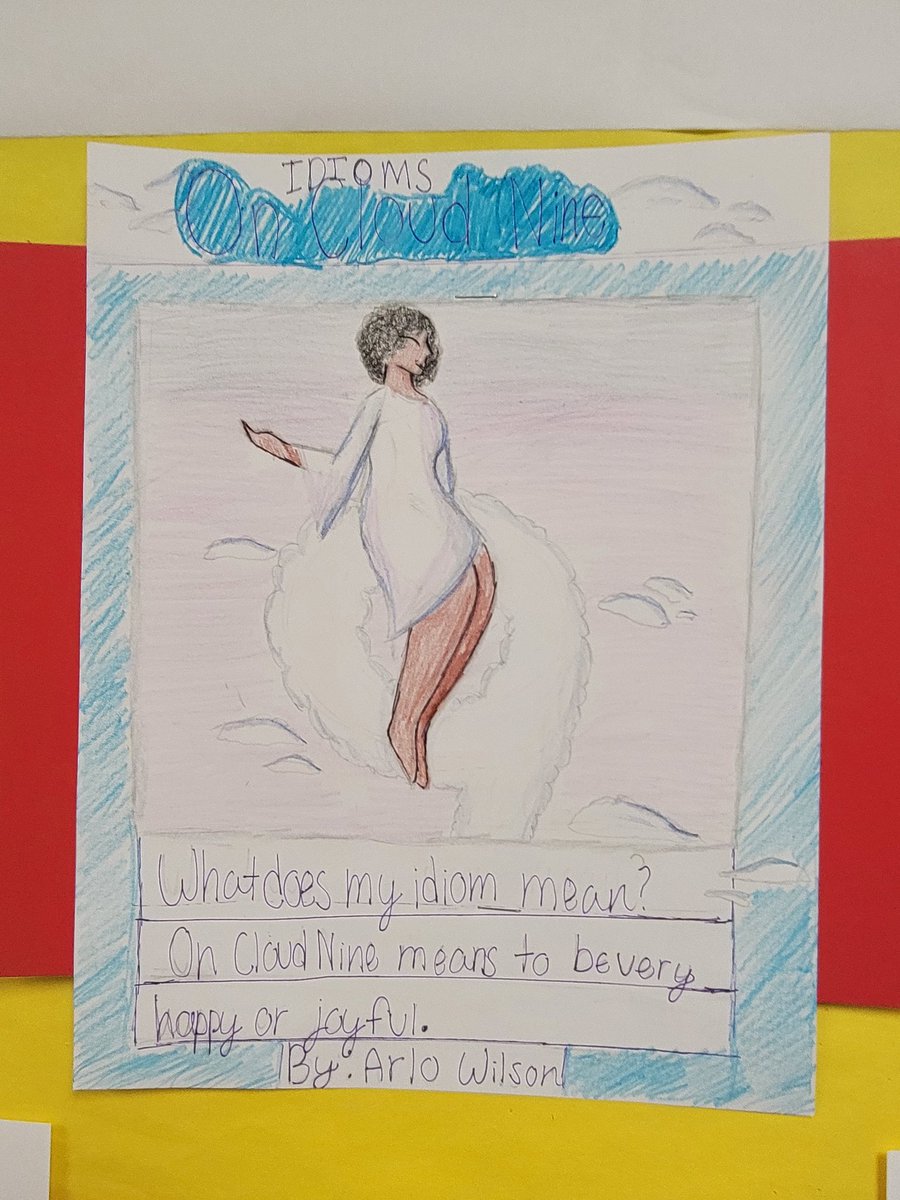 IDIOMS
On Cloud Nine
What does my idiom mean?
On Cloud Nine means to be very
happy or joyful.
By. Arlo Wilson